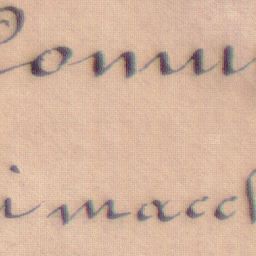 Comu
i macch